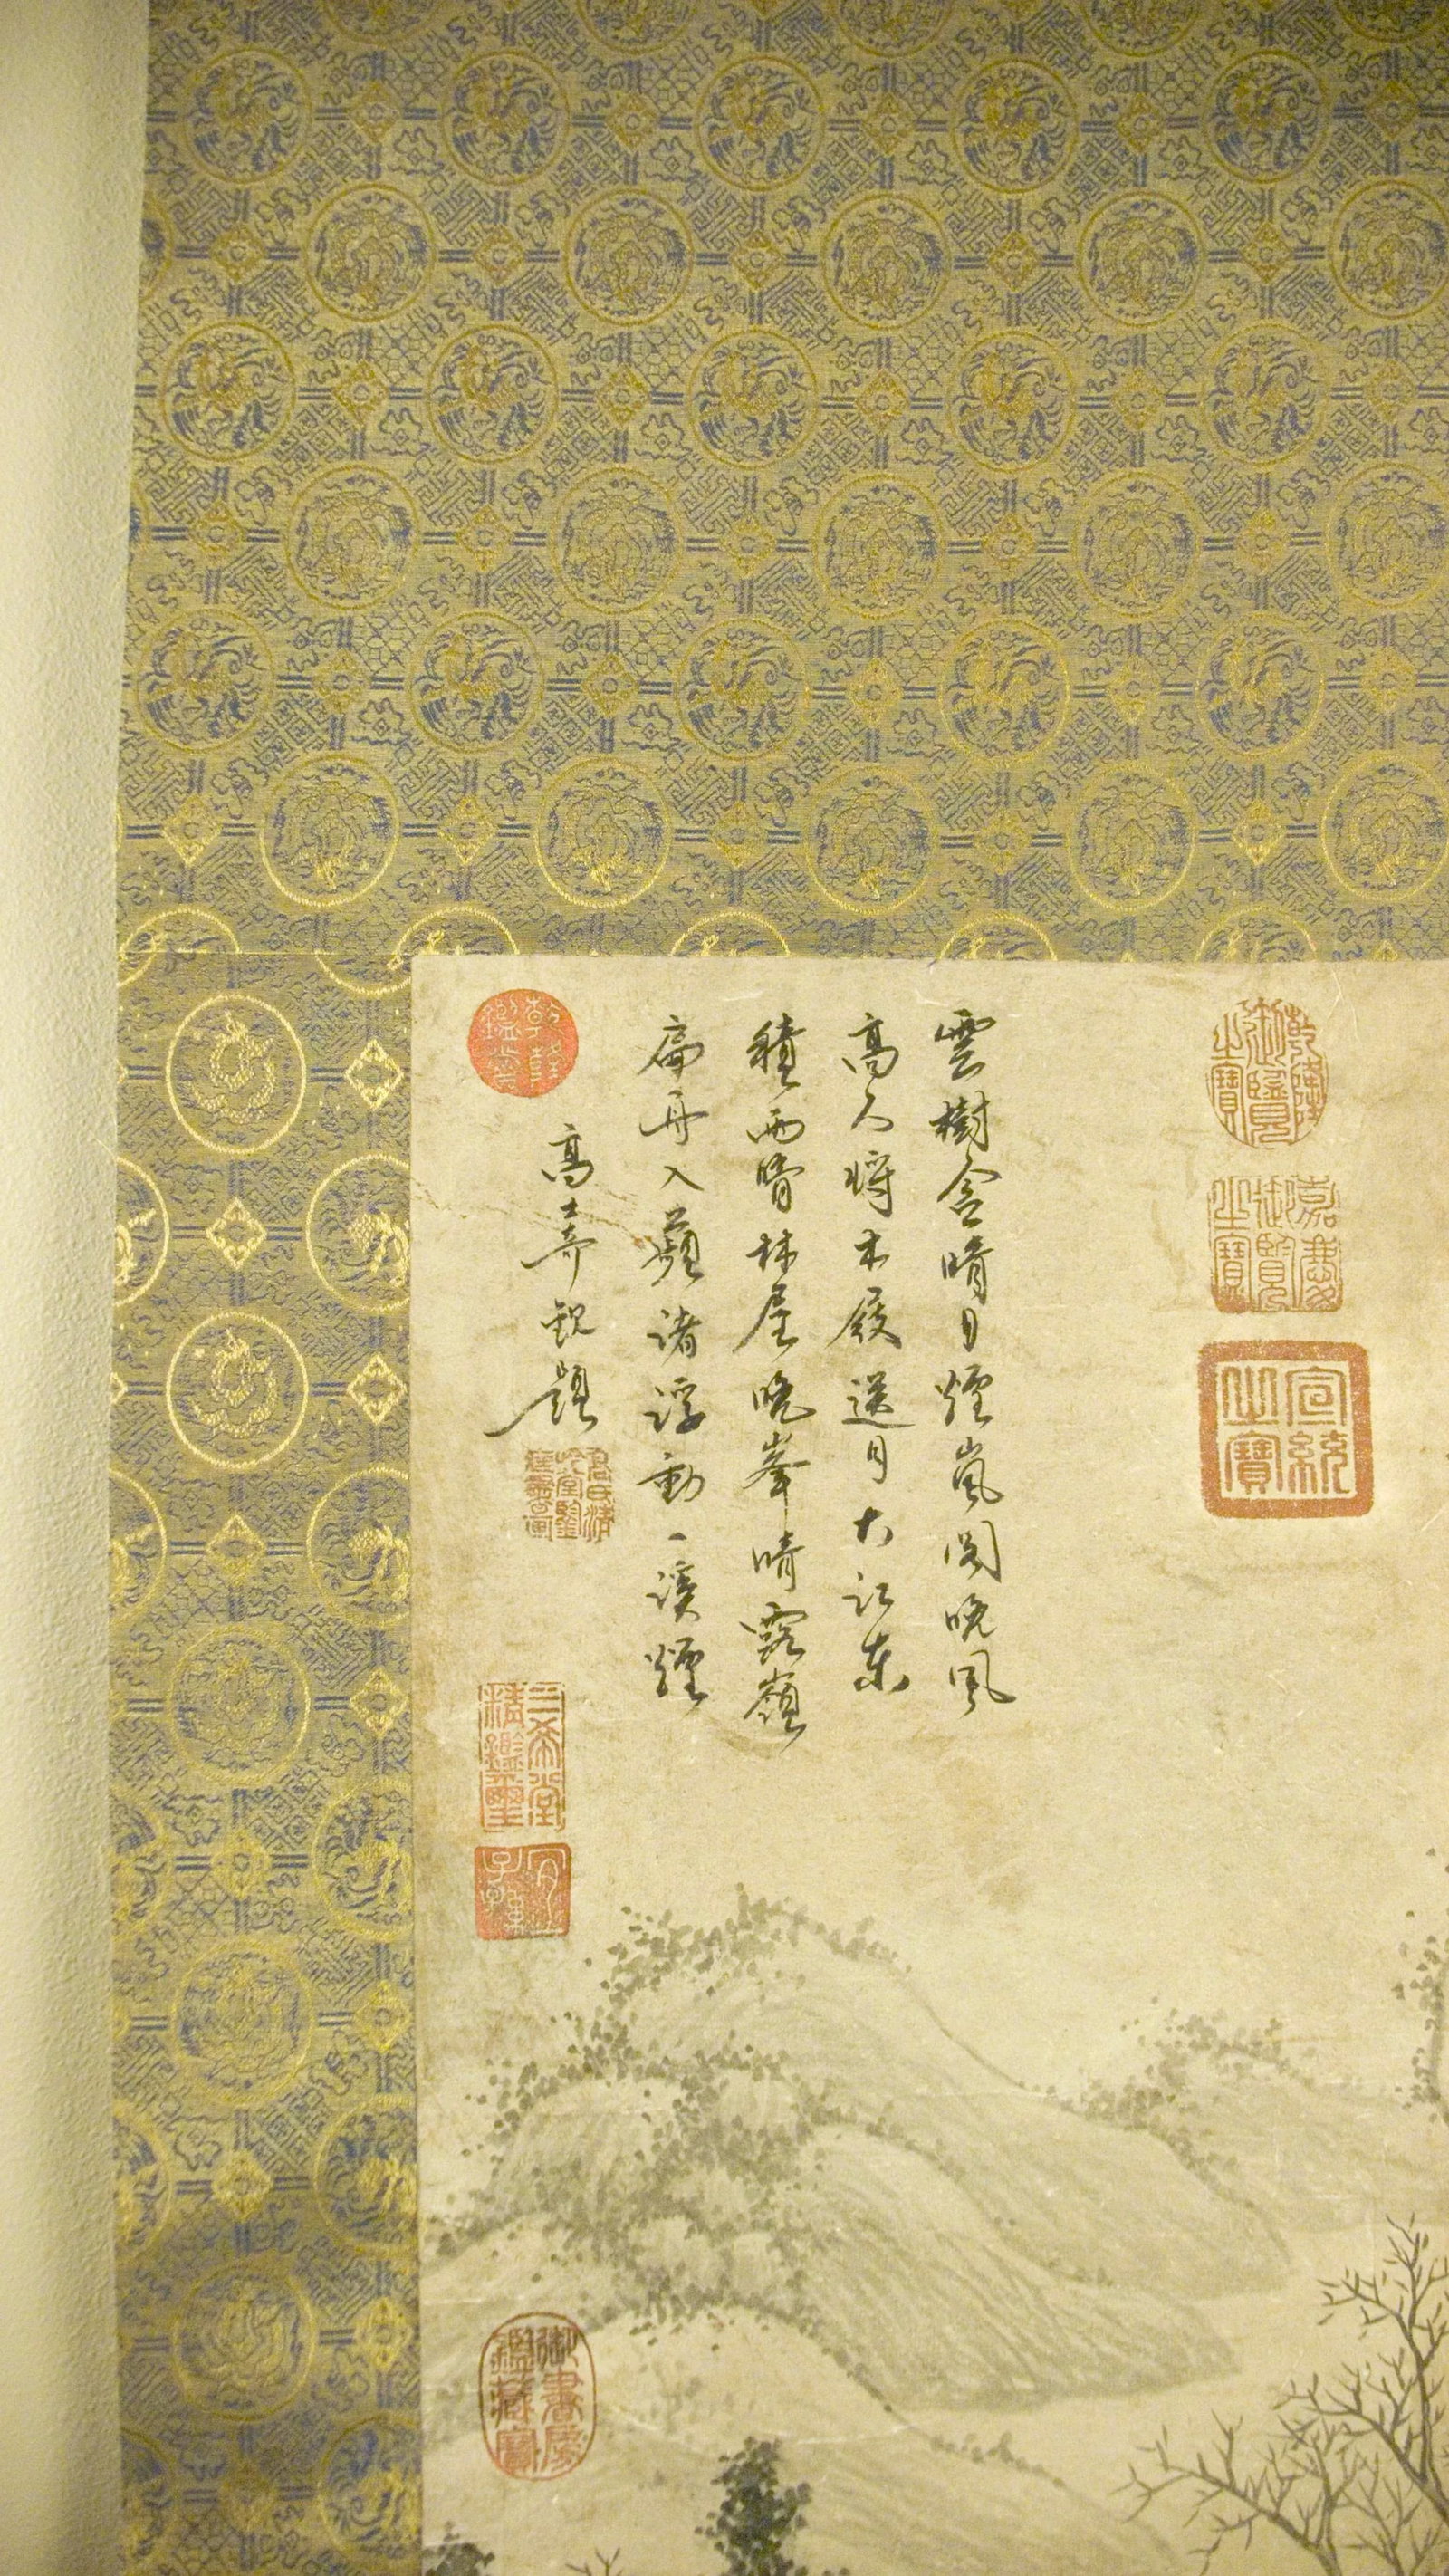 乾隆御覽之寶
嘉慶御覽之寶
宣統之寶
雲樹含晴日煙嵐開晚風
高人將木屐送月大江東
積雨暗林屋晚峯晴露巔
扁舟入蘋渚浮動一溪煙
高士奇觀題
乾隆鑑賞
三希堂精鑑璽
宜子孫
御書房鑑藏寶